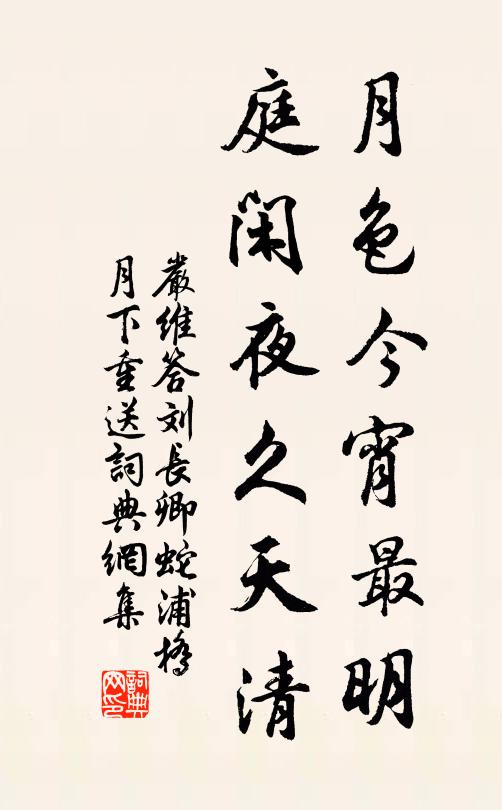 月色今宵最明
庭闲夜久天清
嚴維答刘長卿蛇浦橋
月下重送詞典網集
詞典网印